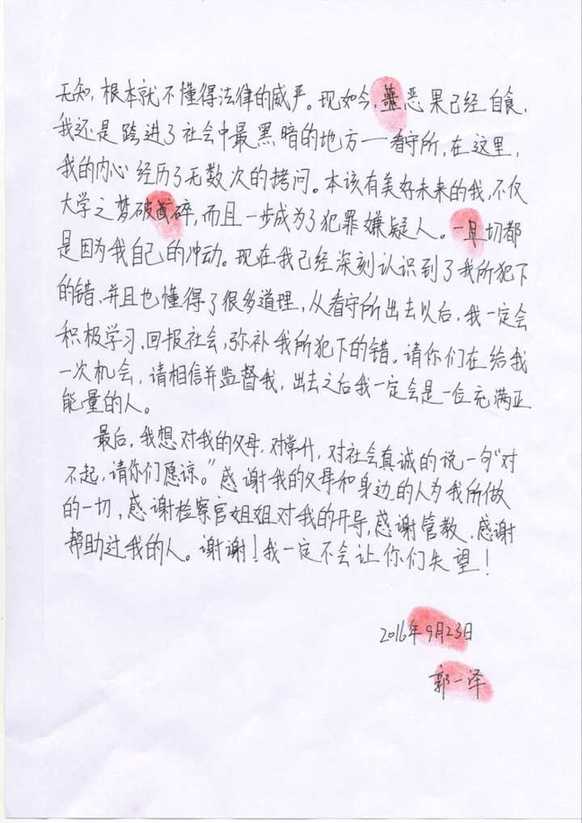 无知，根本就不懂得法律的威严。现如今，恶果已经自食，
我还是跨进了社会中最黑暗的地方——看守所，在这里，
我的内心经历了无数次的拷问。本该有美好未来的我，不仅
大学之梦破碎，而且一步成为了犯罪嫌疑人。一切都
是因为我自己的冲动。现在我已经深刻认识到了我所犯下
的错，并且也懂得了很多道理，从看守所出去以后，我一定会
积极学习，回报社会，弥补我所犯下的错，请你们在给我
一次机会，请相信并监督我，出去之后我一定会是一位充满正
能量的人。
最后，我想对我的父母，对常什，对社会真诚的说一句“对
不起，请你们愿谅。”感谢我的父母和身边的人为我所做
的一切，感谢检察官姐姐对我的开导，感谢管教，感谢
帮助过我的人。谢谢！我一定不会让你们失望！
2016年9月23日
郭一泽